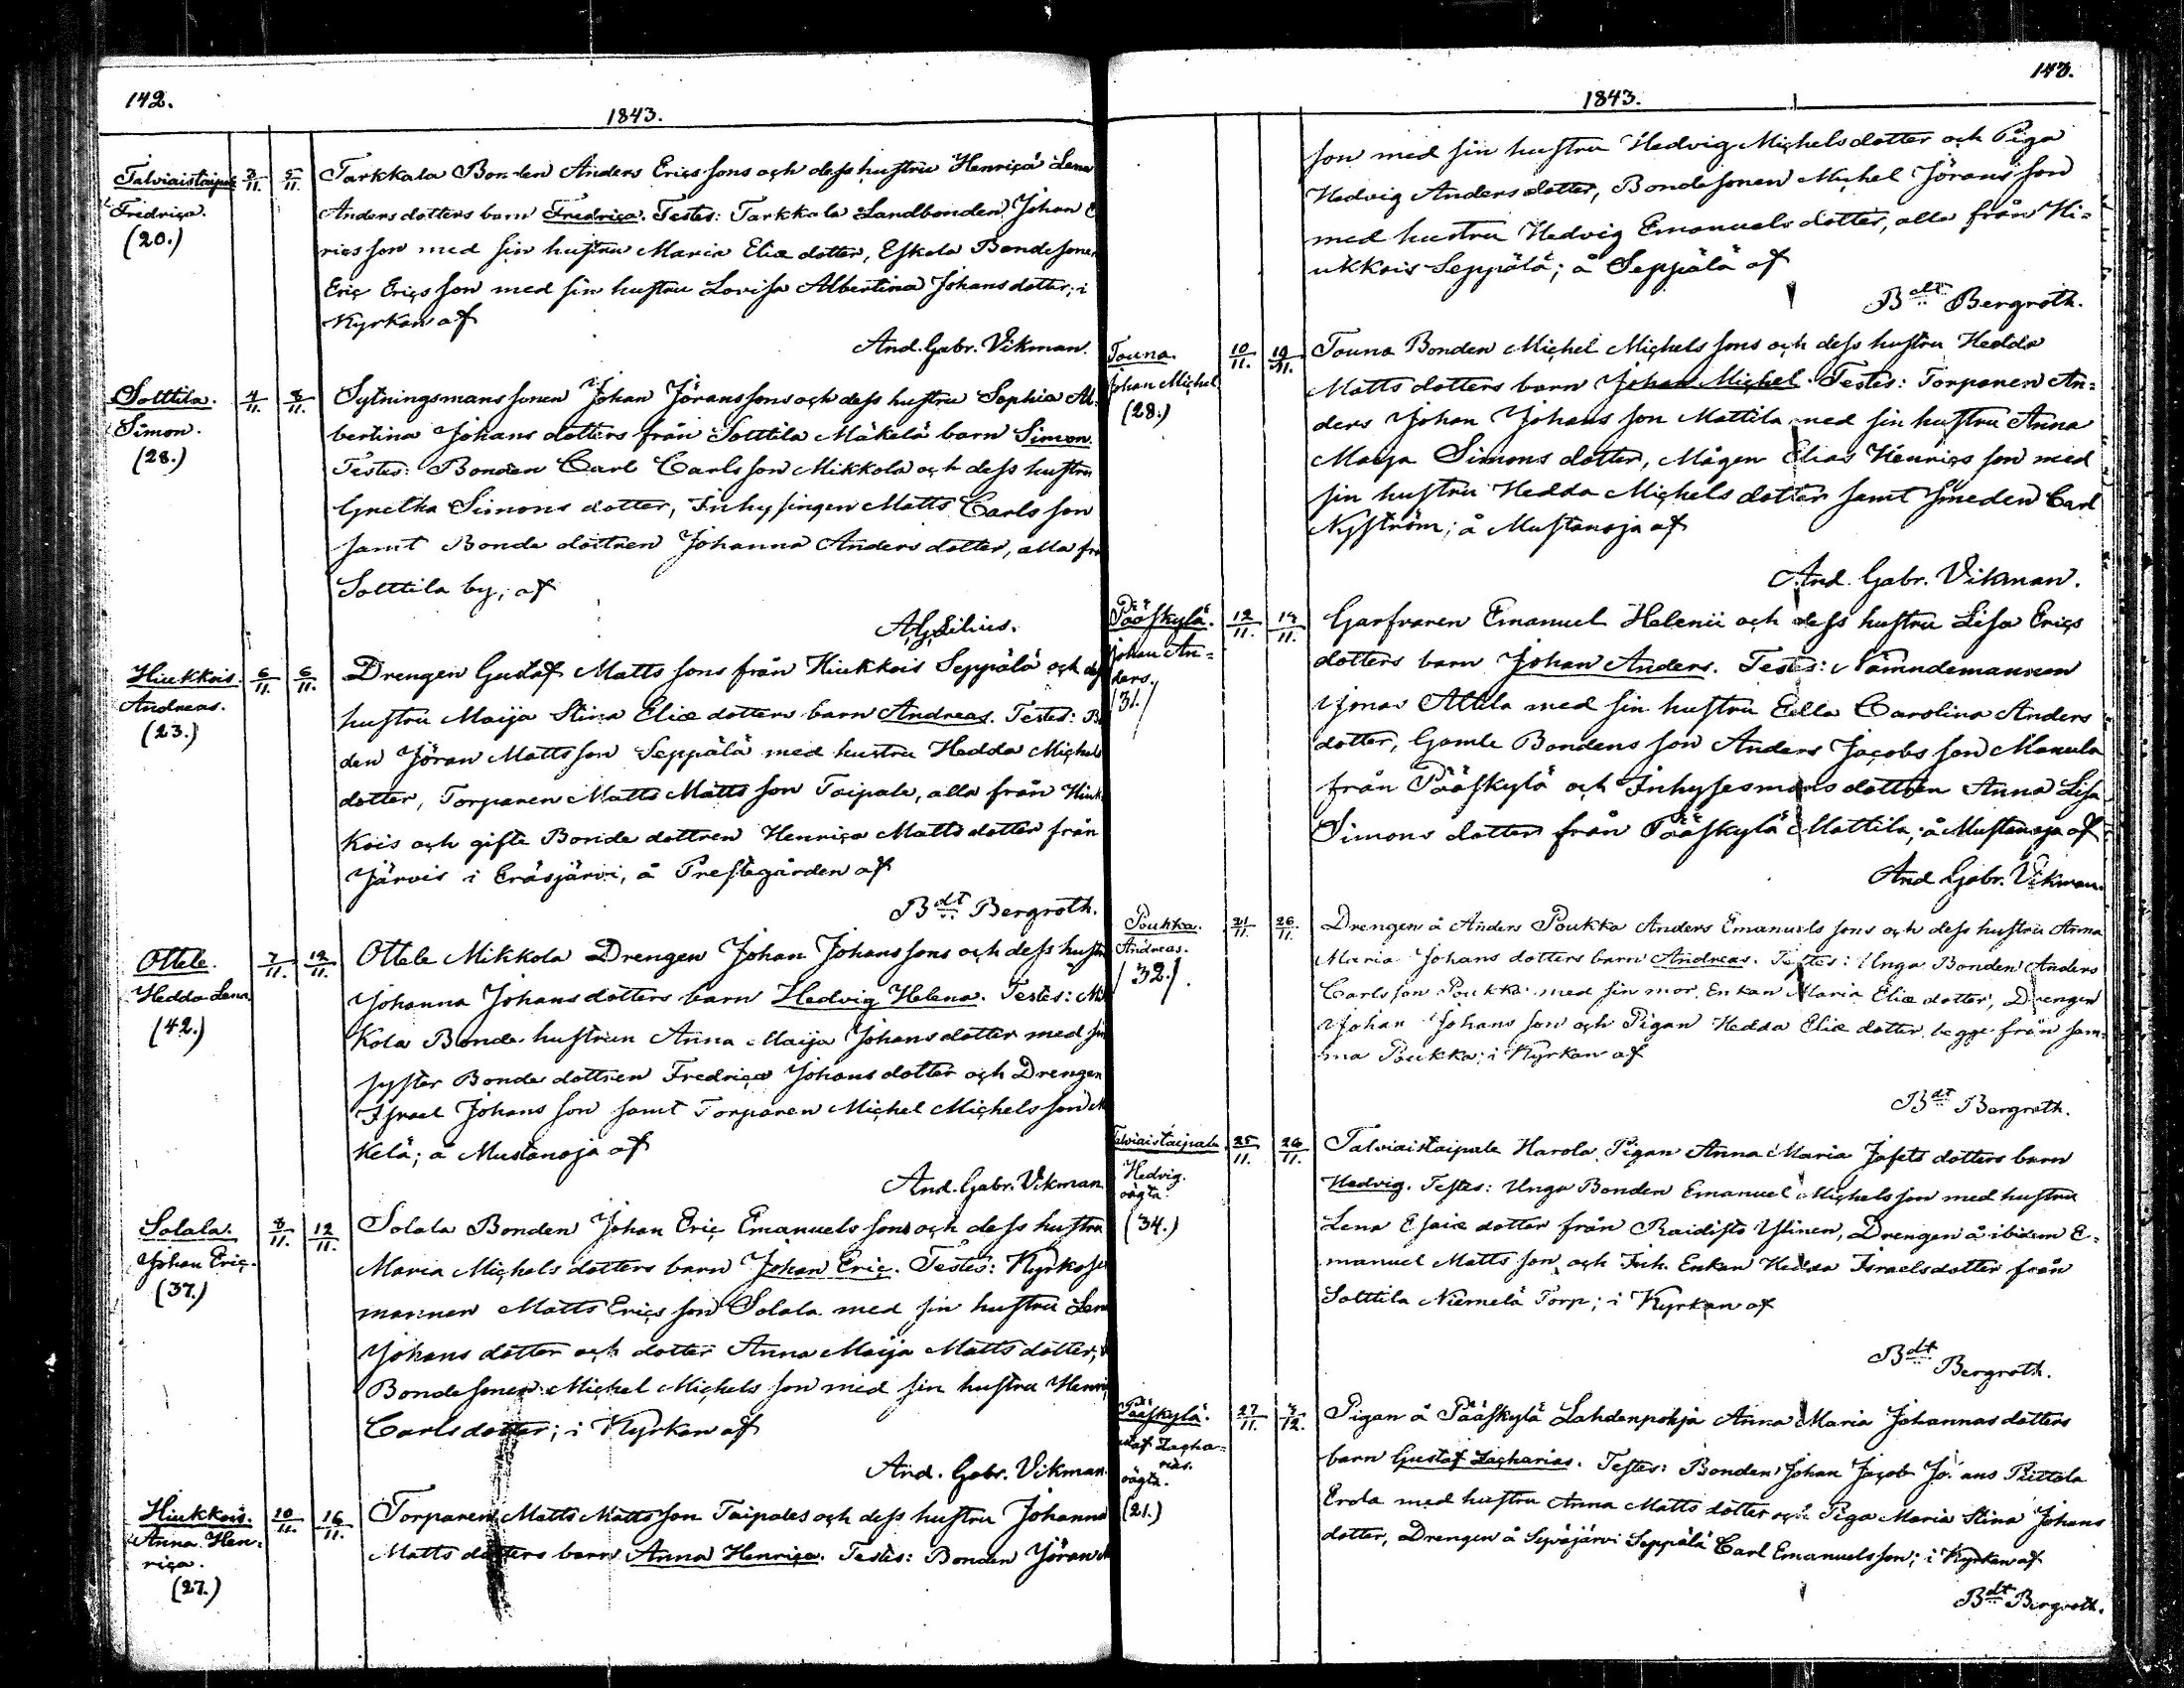 142.
1843.
Talviaistaipale 3/11. 5/11. Tarkkala Bonden Anders Ericssons och dess hustru Henrica Lena
Fredrica. Andersdotters barn Fredrica. Testes: Tarkkala Landbonden Johan E
(20.) ricsson med sin hustru Maria Eliæ dotter, Eskola Bondesonen
Eric Ericsson med sin hustru Lovisa Albertina Johansdotter; i
Kyrkan af
And. Gabr. Vikman.
Sottila. 4/11. 8/11. Sytningsmanssonen Johan Jöranssons och dess hustru Sophia Al-
Simon. bertina Johansdotters från Sottila Mäkelä barn Simon.
(28.) Testes: Bonden Carl Carlsson Mikkola och dess hustru
Gretha Simonsdotter, Inhysingen Matts Carlsson
samt Bonde dottren Johanna Andersdotter, alla fr
Sottila by; af
Hiukkois. 6/11. 6/11. Drengen Gustaf Mattssons från Hiukkois Seppälä och dess
Andreas. hustru Maija Stina Eliæ dotters barn Andreas. Testes: B
(23.) den Jöran Mattsson Seppälä med hustru Hedda Michels
dotter, Torparen Matts Mattsson Taipale, alla från Hiuk
kois och gifte Bonde dottren Henrica Mattsdotter från
Järvis i Eräsjärvi, å Prestegården af
Bdt Bergroth.
Ottele. 7/11. 12/11. Ottele Mikkola Drengen Johan Johanssons och dess hustru
Hedda Lena. Johanna Johansdotters barn Hedvig Helena. Testes: Mi
(42.) kola Bonde hustrun Anna Maija Johansdotter med sin
syster Bonde dottren Fredrica Johansdotter och Drengen
Israel Johansson samt Torparen Michel Michelsson M
kelä; å Mustanoja af
And. Gabr. Vikman
Solala. 8/11. 12/11. Solala Bonden Johan Eric Emanuelssons och dess hustru
Johan Eric. Maria Michelsdotters barn Johan Eric. Testes: Kyrkose
(37.) mannen Matts Ericsson Solala med sin hustru Lena
Johansdotter och dotter Anna Maija Mattsdotter,
Bondesonen Michel Michelsson med sin hustru Henric
Carlsdotter; i Kyrkan af
And. Gabr. Vikman.
Hiukkois. 10/11. 16/11. Torparen Matts Mattsson Taipales och dess hustru Johanna
Anna Hen- Mattsdotters barn Anna Henrica. Testes: Bonden Jöran M
rica.
(27.)
143.
1843.
son med sin hustru Hedvig Michelsdotter och Piga
Hedvig Andersdotter, Bondesonen Michel Jöransson
med hustru Hedvig Emanuelsdotter, alla från Hi-
ukkois Seppälä; å Seppälä af
Bdt Bergroth.
Touna. 10/11. 19/11. Touna Bonden Michel Michelssons och dess hustru Hedda
Johan Michel Mattsdotters barn Johan Michel. Testes: Torparen An-
(28.) ders Johan Johansson Mattila med sin hustru Anna
Maija Simonsdotter, Mågen Elias Henricsson med
sin hustru Hedda Michelsdotter samt Smeden Carl
Nyström; å Mustanoja af
And. Gabr. Vikman.
Pääskylä. 12/11. 14/11. Garfvaren Emanuel Helenii och dess hustru Lisa Erics
Johan An- dotters barn Johan Anders. Testes: Nämndemannen
ders. Jonas Attila med sin hustru Eella Carolina Anders
/31./ dotter, Gamle Bondens son Anders Jacobsson Manula
från Pääskylä och Inhysesmans dottren Anna Lisa
Simonsdotter från Pääskylä Mattila; å Mustanoja af
And Gabr. Vikman.
Poukka. 21/11. 26/11. Drengen å Anders Poukka Anders Emanuelssons och dess hustru Anna
Andreas. Maria Johansdotters barn Andreas. Testes: Unga Bonden Anders
/32./ Carlsson Poukka med sin mor, Enkan Maria Eliæ dotter, Drengen
Johan Johansson och Pigan Hedda Eliæ dotter, begge från sam-
ma Poukka; i Kyrkan af
Bdt Bergroth.
Talviaistaipale. 25/11. 26/11. Talviaistaipale Harola Pigan Anna Maria Jafetsdotters barn
Hedvig. Hedvig. Testes: Unga Bonden Emanuel Michelsson med hustru
oägta. Lena Esaiæ dotter från Raidisto Ylinen, Drengen å ibidem E-
(34.) manuel Mattsson och Inh. Enkan Hedda Israelsdotter från
Sottila Niemelä Torp; i Kyrkan af
Bdt Bergroth.
Pääskylä. 27/11. 3/12. Pigan å Pääskylä Lahdenpohja Anna Maria Johannasdotters
staf Zacha- barn Gustaf Zacharias. Testes: Bonden Johan Jacob Jo ans Rittola
rias.
oägta. Erola med hustru Anna Mattsdotter och Piga Maria Stina Johans
(21.) dotter, Drengen å Seppälä Carl Emanuelsson; i Kyrkan af
Bdt Bergroth.